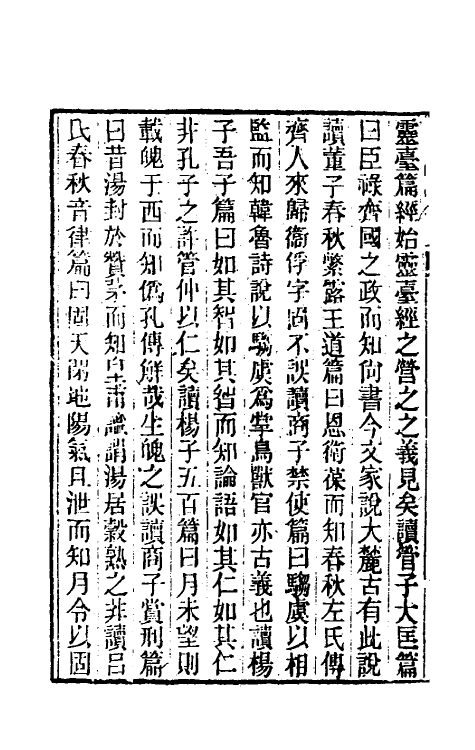 靈臺篇經始靈臺經之營之之義見矣讀管子大匡篇
曰臣祿齊國之政而知尙書今文家說大麓古有此說
讀董子春秋繁露王道篇曰恩衞葆而知春秋左氏傳
齊人來歸衞俘字固不誤讀商子禁使篇曰騶虞以相
監而知韓魯詩說以騶虞爲掌鳥獸官亦古義也讀楊
子吾子篇曰如其智如其智而知論語如其仁如其仁
非孔子之許管仲以仁矣讀楊子五百篇曰月未望則
載魄于西而知僞孔傳解哉生魄之誤讀商子賞刑篇
曰昔湯封於贊茅而知皇甫謐謂湯居穀熟之非讀呂
氏春秋音律篇曰固天閉地陽氣且泄而知月令以固